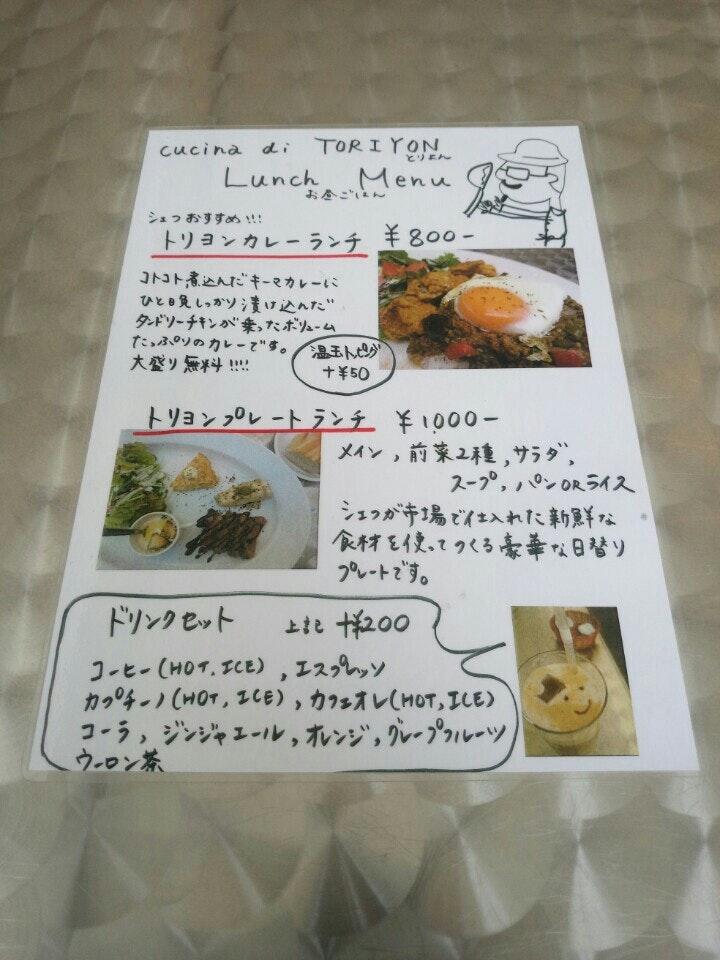 cucina di TORIYON
とりよん
Lunch Menu
お昼ごはん
シェフおすすめ!!!
トリヨンカレーランチ ¥800-
コトコト煮込んだキーマカレーに
ひと晩しっかり漬け込んだ
タンドリーチキンが乗ったボリューム
たっぷりのカレーです。
大盛り無料!!!!
温玉トッピング
+¥50
トリヨンプレートランチ ¥1,000-
メイン,前菜2種,サラダ,
スープ,パンORライス
シェフが市場で仕入れた新鮮な
食材を使ってつくる豪華な日替り
プレートです。
ドリンクセット 上記+¥200
コーヒー(HOT,ICE),エスプレッソ
カプチーノ(HOT,ICE),カフェオレ(HOT,ICE)
コーラ,ジンジャエール,オレンジ,グレープフルーツ
ウーロン茶